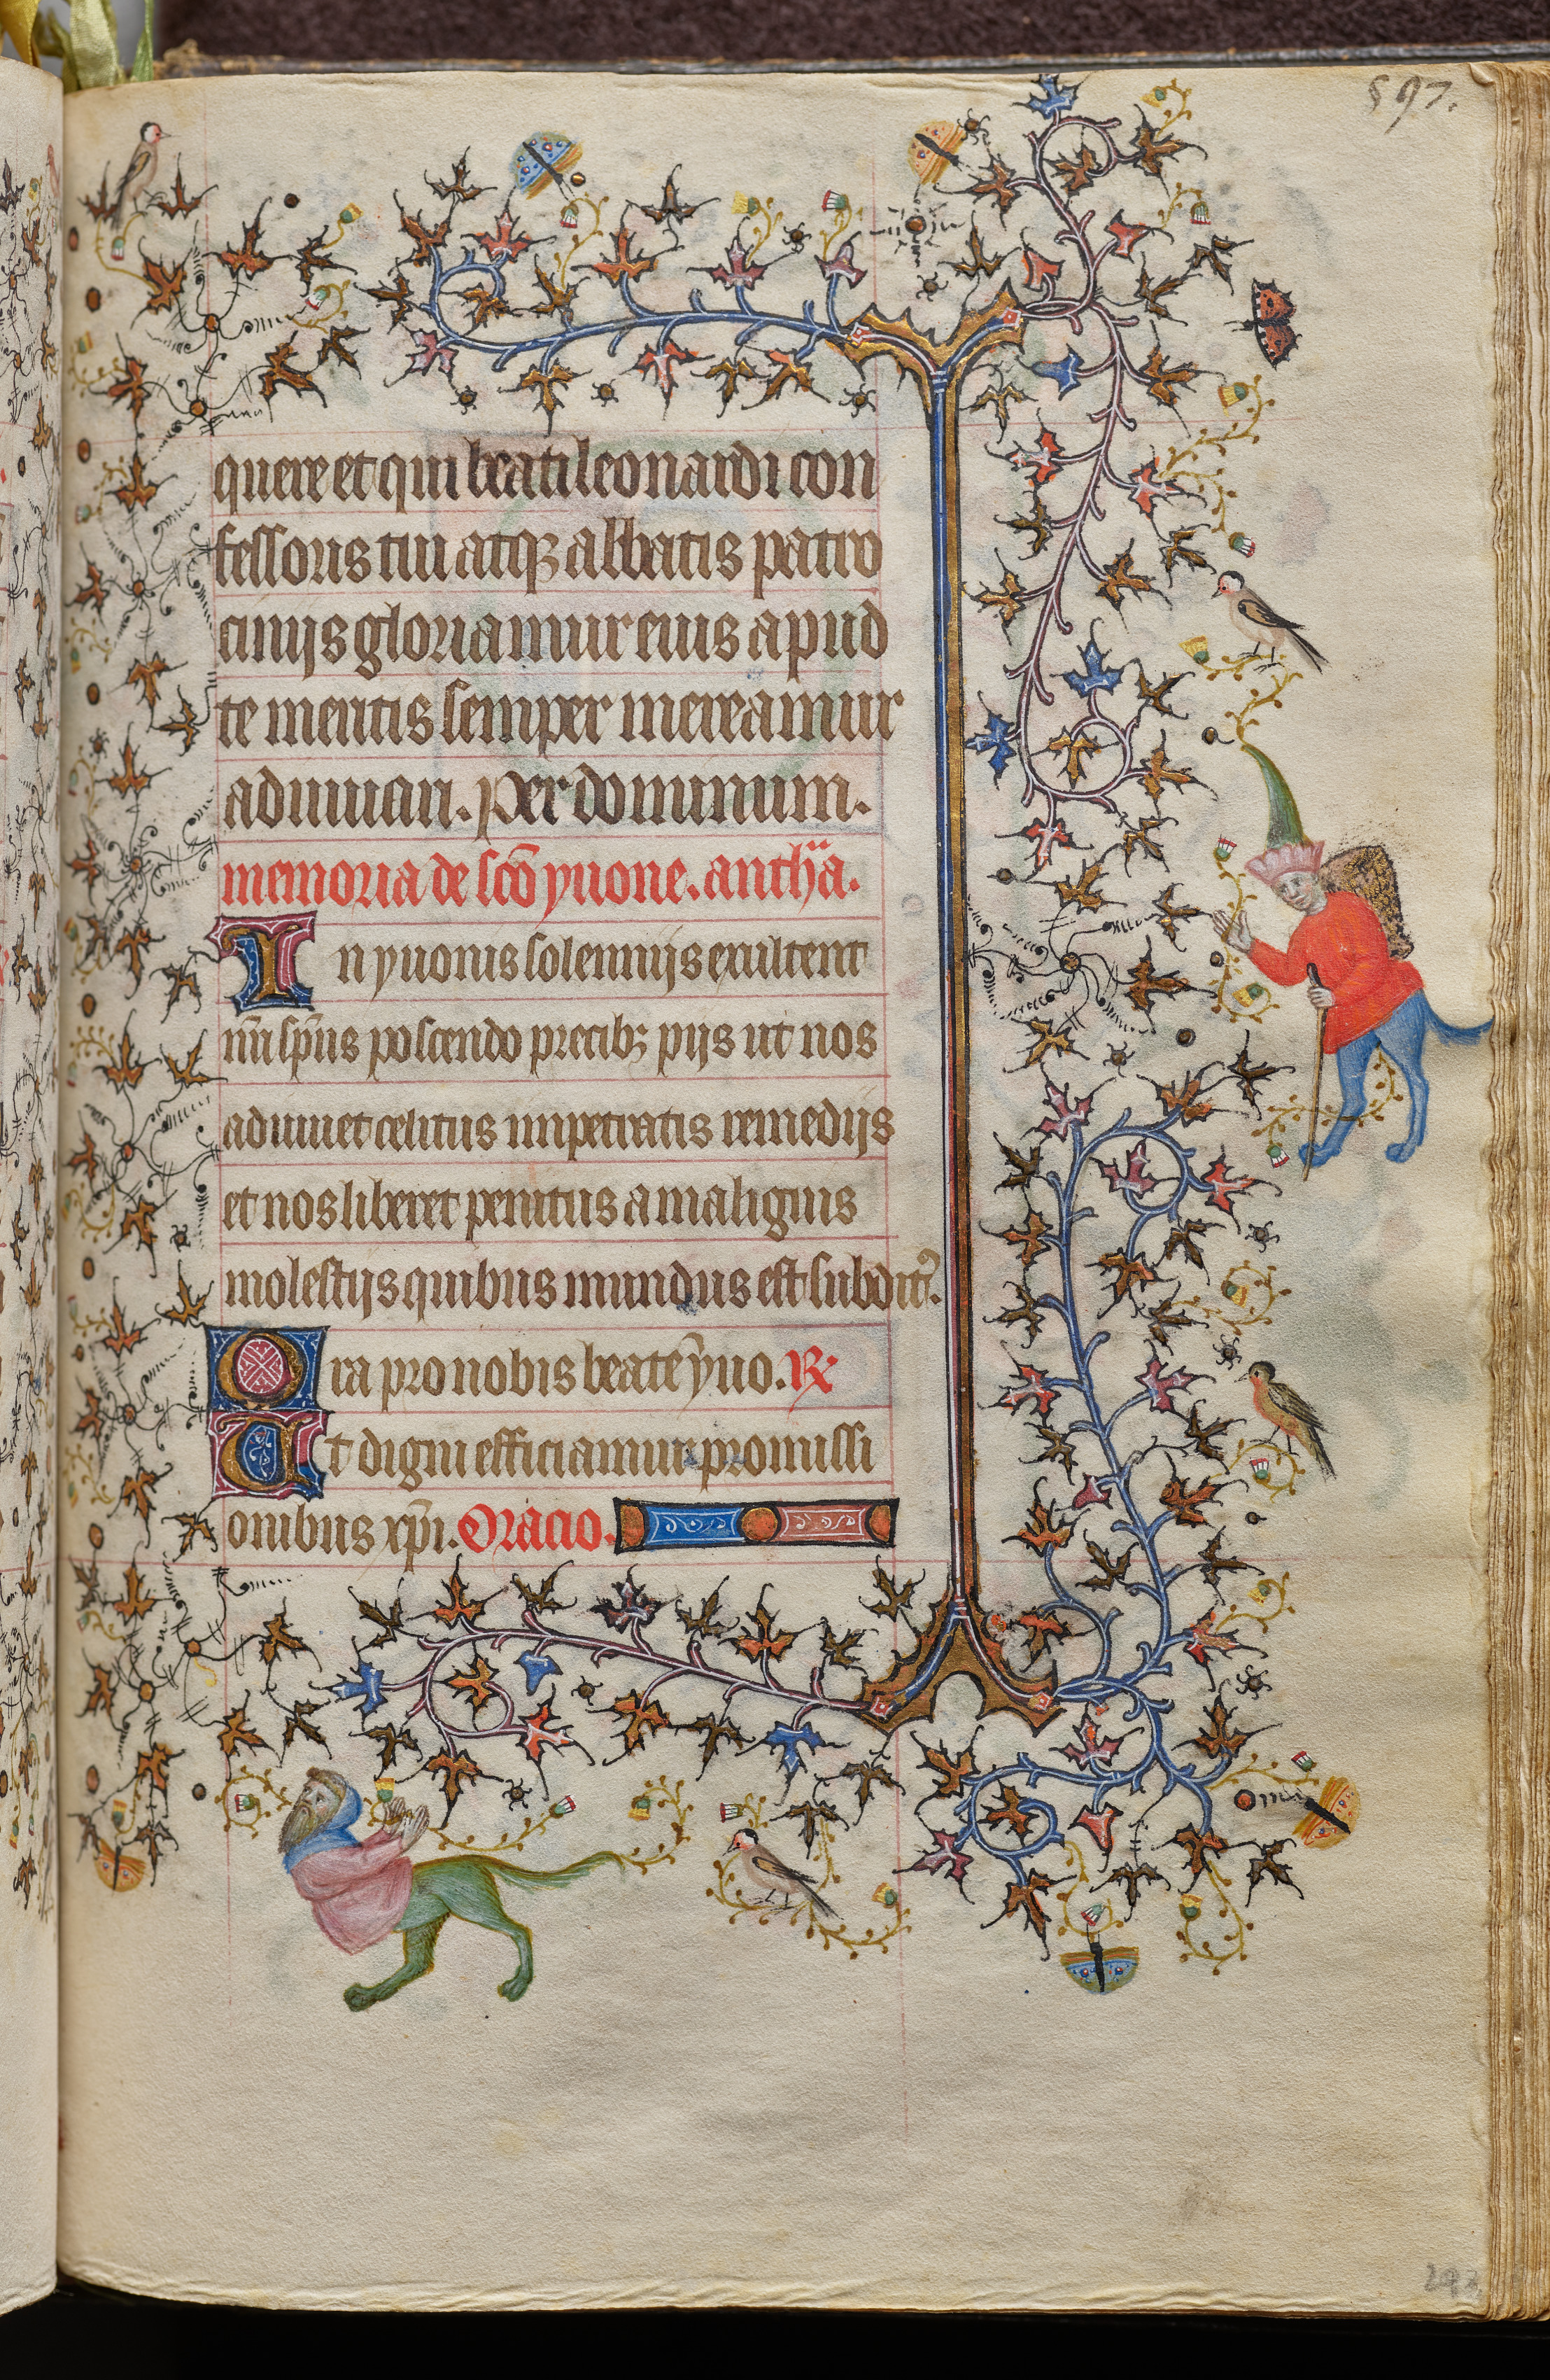 597.
quere et qui beati leonardi con
fessoris tui atqꝫ abbatis patro
cinijs gloriamur eius apud
te meritis semper mereamur
adiuuari. Per dominum.
memoria de sc̄o yuone. anth̄a.
In yuonis solennijs exultent
nr̄i sp̄us poscendo precibꝫ pijs ut nos
adiuuet celitus impetratis remedijs
et nos liberet penitus a malignis
molestijs quibus mundus est subditꝰ.
Ora pro nobis beate yuo. ℞
Ut digni efficiamur promissi
onibus xp̄i. Oracio.
293